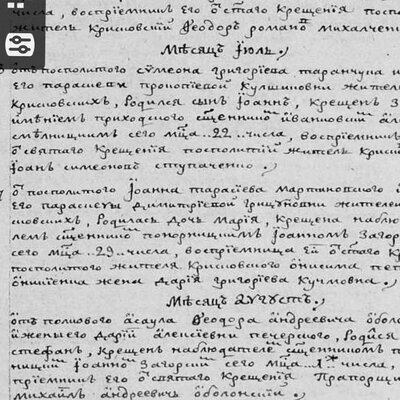 числа, воспрїемникъ Его ѿ стаго Крещенїя посп
житель крисковскїй Ѳеодоръ романѡ Михалчен
Мѣсяцъ Іюль.
ѿтъ посполитого сѷмеона григорїева таранчука и
Его параскеви прокопїевой жител
крисковскихъ, родился сынъ Іоаннъ, крещенъ
имѣнїемъ приходского сщенника
сего мца 22 числа, воспрїемникъ
ѿ святаго Крещенїя посполитїй житель криск
Іоанъ симеоновъ ступаченко.
ѿ посполитого Іоанна тарасїева мартыновского
Его параскеѵы димитрїевой жителей
сновскихъ, родилась дочь Марїя, крещена наблю
лемъ сщенникѡ понорницкимъ Іоанномъ Загор
сего мца 29 числа, воспрїемница Ей ѿ стаго К
посполитого жителя крисковского ѻнисима пет
жена дарїя григорїева
Мѣсяцъ Аѵгустъ.
ѿтъ полкового асаула Ѳеодора андреевича обол
и жены его дарїи алексїевны печерского, родися
стефан, крещенъ наблюдателем сщенникомъ п
ницким Іоаннѡ Загорским сего мца 1 числа,
прїемникъ Его ѿ святаго Крещенїя прапорщи
михаилъ андреевичъ оболонскїй